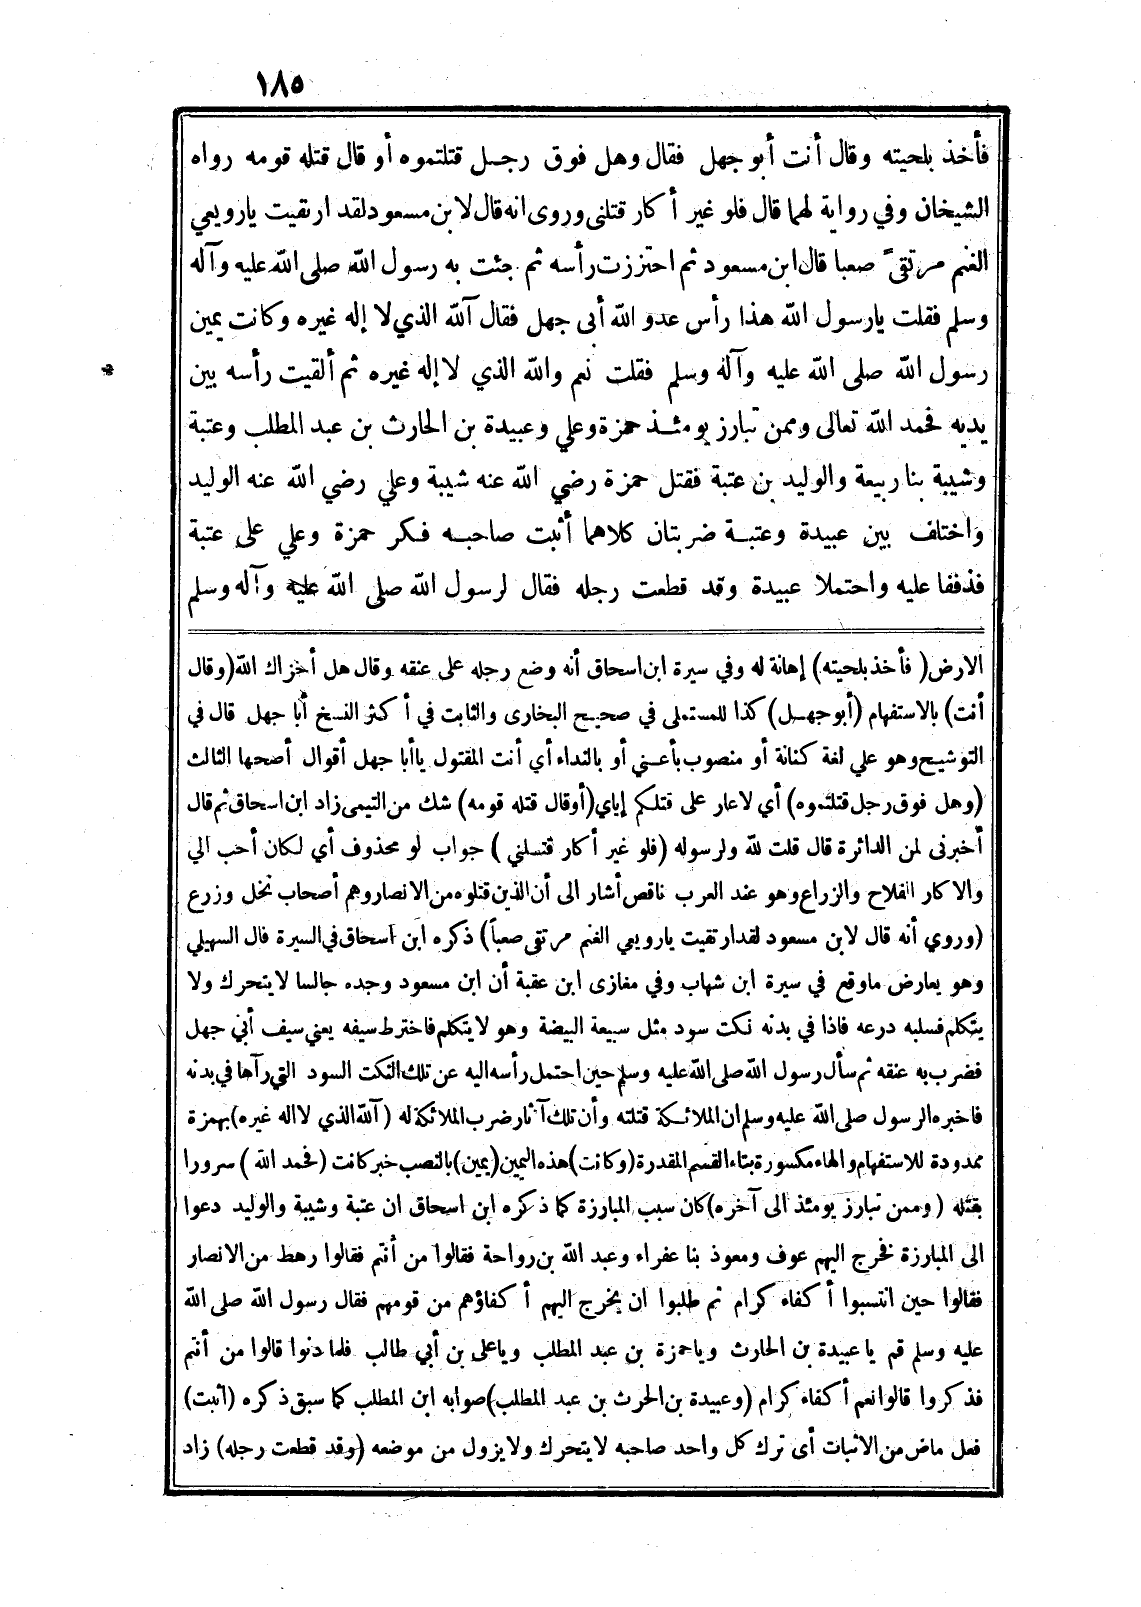 ١٨٥
فأخذ بلحيته وقال أنت أبو جهل فقال وهل فوق رجل قتلتموه أو قال قتله قومه رواه
الشيخان وفي رواية لهما قال فلو غير أكار قتلنى وروى انه قال لابن مسعود لقد ارتقيت يارويعي
الغنم مرتقىً صعبا قال ابن مسعود ثم احتززت رأسه ثم جئت به رسول الله صلى الله عليه وآله
وسلم فقلت يارسول الله هذا رأس عدو الله أبى جهل فقال آلله الذي لا إله غيره وكانت يمين
رسول الله صلى الله عليه وآله وسلم فقلت نعم والله الذي لا إله غيره ثم ألقيت رأسه بين
يديه فحمد الله تعالى وممن تبارز يومئذ حمزة وعلي وعبيدة بن الحارث بن عبد المطلب وعتبة
وشيبة بنا ربيعة والوليد بن عتبة فقتل حمزة رضي الله عنه شيبة وعلي رضي الله عنه الوليد
واختلف بين عبيدة وعتبة ضربتان كلاهما أثبت صاحبه فكر حمزة وعلي على عتبة
فذففا عليه واحتملا عبيدة وقد قطعت رجله فقال لرسول الله صلى الله عليه وآله وسلم
الارض (فأخذ بلحيته) إهانة له وفي سيرة ابن اسحاق أنه وضع رجله على عنقه وقال هل أخزاك الله (وقال
أنت) بالاستفهام (أبو جهل) كذا للمستملى في صحيح البخارى والثابت في أكثر النسخ أبا جهل قال في
التوشيح وهو علي لغة كنانة أو منصوب بأعني أو بالنداء أي أنت المقتول ياأبا جهل أقوال أصحها الثالث
(وهل فوق رجل قتلتموه) أي لاعار على قتلكم إياي (أو قال قتله قومه) شك من التيمى زاد ابن اسحاق ثم قال
أخبرنى لمن الدائرة قال قلت لله ولرسوله (فلو غير أكار قتلني) جواب لو محذوف أي لكان أحب الي
والاكار الفلاح والزراع وهو عند العرب ناقص أشار الى أن الذين قتلوه من الانصار وهم أصحاب نخل وزرع
(وروي أنه قال لابن مسعود لقد ارتقيت يارويعي الغنم مرتقى صعباً) ذكره ابن اسحاق في السيرة قال السهيلي
وهو يعارض ماوقع في سيرة ابن شهاب وفي مغازى ابن عقبة أن ابن مسعود وجده جالسا لايتحرك ولا
يتكلم فسلبه درعه فاذا في بدنه نكت سود مثل سبيعة البيضة وهو لايتكلم فاخترط سيفه يعني سيف أبي جهل
فضرب به عنقه ثم سأل رسول الله صلى الله عليه وسلم حين احتمل رأسه اليه عن تلك النكت السود التي رآها في بدنه
فاخبره الرسول صلى الله عليه وسلم ان الملائكة قتلته وأن تلك آثار ضرب الملائكة له (آلله الذي لااله غيره) بهمزة
ممدودة للاستفهام والهاء مكسورة بتاء القسم المقدرة (وكانت) هذه اليمين (يمين) بالنصب خبر كانت (فحمد الله) سرورا
بقتله (وممن تبارز يومئذ الى آخره) كان سبب المبارزة كما ذكره ابن اسحاق ان عتبة وشيبة والوليد دعوا
الى المبارزة فخرج اليهم عوف ومعوذ بنا عفراء وعبد الله بن رواحة فقالوا من أنتم فقالوا رهط من الانصار
فقالوا حين انتسبوا أكفاء كرام ثم طلبوا ان يخرج اليهم أكفاؤهم من قومهم فقال رسول الله صلى الله
عليه وسلم قم ياعبيدة بن الحارث وياحمزة بن عبد المطلب وياعلى بن أبي طالب فلما دنوا قالوا من أنتم
فذكروا قالوا نعم أكفاء كرام (وعبيدة بن الحرث بن عبد المطلب) صوابه ابن المطلب كما سبق ذكره (أثبت)
فعل ماض من الاثبات أى ترك كل واحد صاحبه لايتحرك ولايزول من موضعه (وقد قطعت رجله) زاد